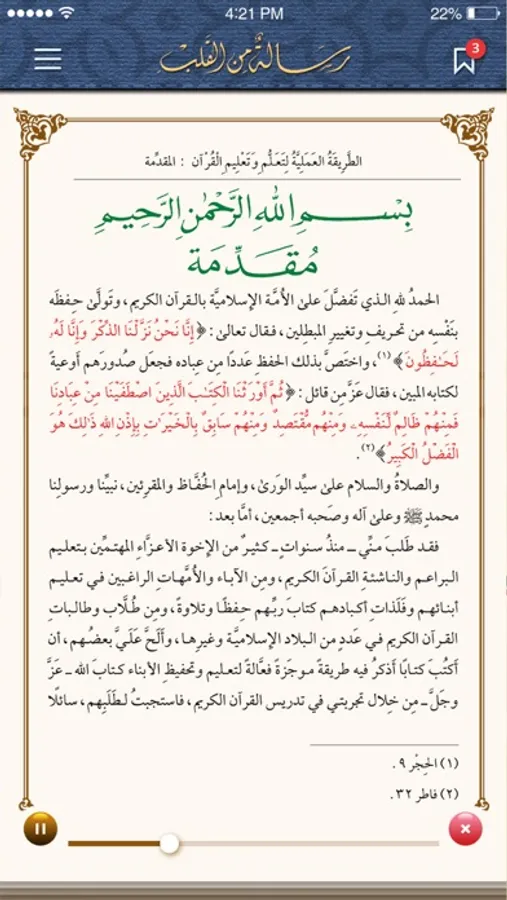 4:21 PM
22%
رسالة من القلب
3
الطَّرِيقَةُ العَمَلِيَّةُ لِتَعَلُّمِ وَتَعْلِيمِ الْقُرْآن : المقدِّمة
بِسْمِ اللهِ الرَّحْمٰنِ الرَّحِيمِ
مُقَدِّمَة
الحمدُ للهِ الـذي تَفضَّلَ علىٰ الأُمَّـة الإسلاميَّة بالـقرآن الكريم، وتَولَّىٰ حِـفظَه
بنَفْسِه من تحريفِ وتغييرِ المبطِلين، فقال تعالىٰ: ﴿إِنَّا نَحْنُ نَزَّلْنَا الذِّكْرَ وَإِنَّا لَهُۥ
لَحَـٰفِظُونَ﴾(١)، واختَصَّ بذلك الحفظِ عَددًا مِن عباده فجعَل صُدورَهم أوعيةً
لكتابه المبين، فقال عَزَّ مِن قائل: ﴿ثُمَّ أَوْرَثْنَا الْكِتَـٰبَ الَّذِينَ اصْطَفَيْنَا مِنْ عِبَادِنَا
فَمِنْهُمْ ظَالِمٌ لِّنَفْسِهِۦ وَمِنْهُم مُّقْتَصِدٌ وَمِنْهُمْ سَابِقٌ بِالْخَيْرَٰتِ بِإِذْنِ اللهِ ذَٰلِكَ هُوَ
الْفَضْلُ الْكَبِيرُ﴾(٢).
والصلاةُ والسلام علىٰ سيِّد الورىٰ، وإمامِ الحُفَّاظ والمقرِئين، نبيِّنا ورسولِنا
محمدٍ ﷺ وعلىٰ آله وصَحبه أجمعين، أمَّا بعد:
فقـد طَلبَ منِّي ــ منذُ سنواتٍ ــ كثيرٌ من الإخوة الأعزَّاءِ المهتمِّين بتعليم
البراعـم والناشئةِ القرآنَ الكريم، ومِن الآباء والأُمَّهات الراغبين في تعليـم
أبنائهم وفَلَذاتِ أكبادهم كتابَ ربِّهم حِفظًا وتلاوةً، ومِن طُلَّاب وطالبـات
القرآن الكريم في عَددٍ من البلاد الإسلاميَّة وغيرِها، وألَحَّ عَلَيَّ بعضُهم، أن
أَكتُبَ كتابًا أَذكرُ فيه طريقةً موجَزةً فعَّالةً لتعليم وتحفيظِ الأبناء كتابَ الله ــ عَزَّ
وجَلَّ ــ مِن خِلال تجربتي في تدريس القرآن الكريم، فاستجبتُ لطَلَبِهم، سائلًا
(١) الحِجْر ٩.
(٢) فاطر ٣٢.